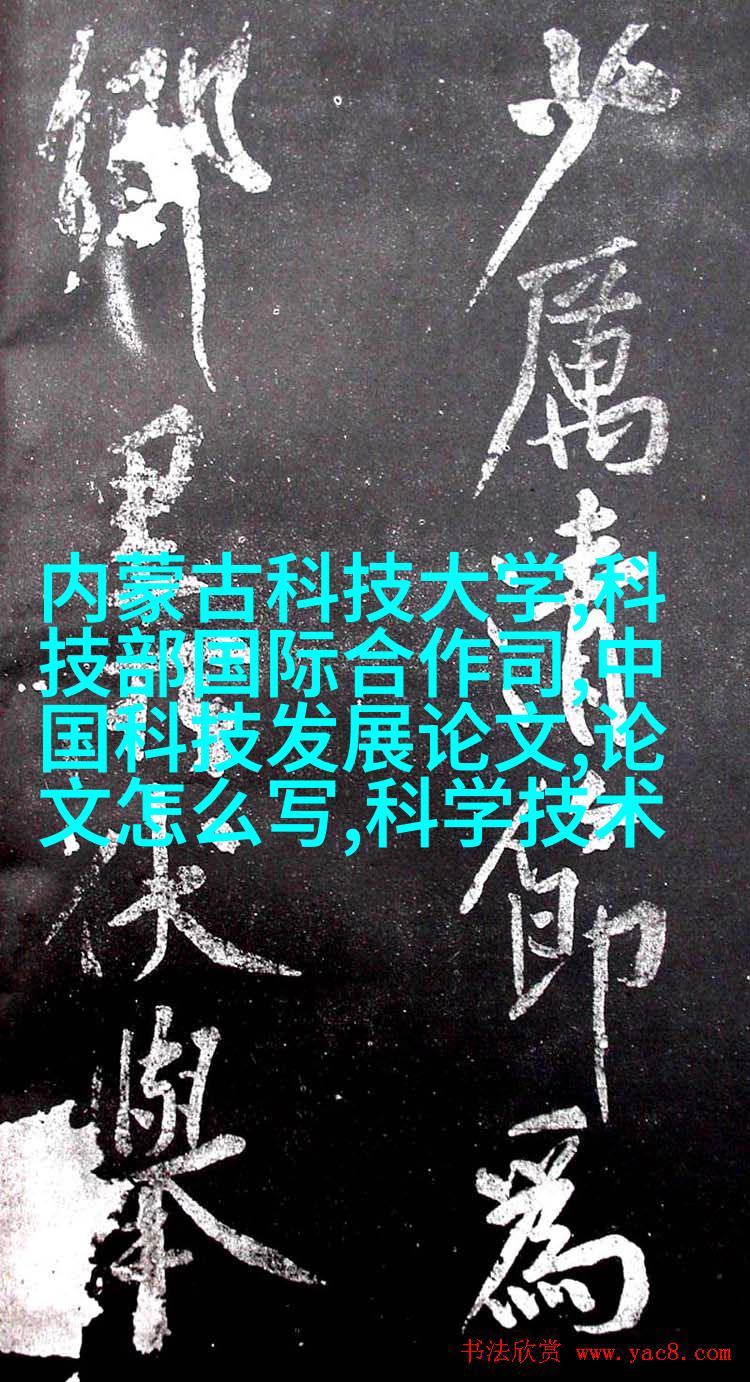 少厲清節為
鄉里伏舉
内蒙古科技大学,科
技部国际合作司,中
国科技发展论文,论
文怎么写,科学技术
书法欣赏 www.yac8.com